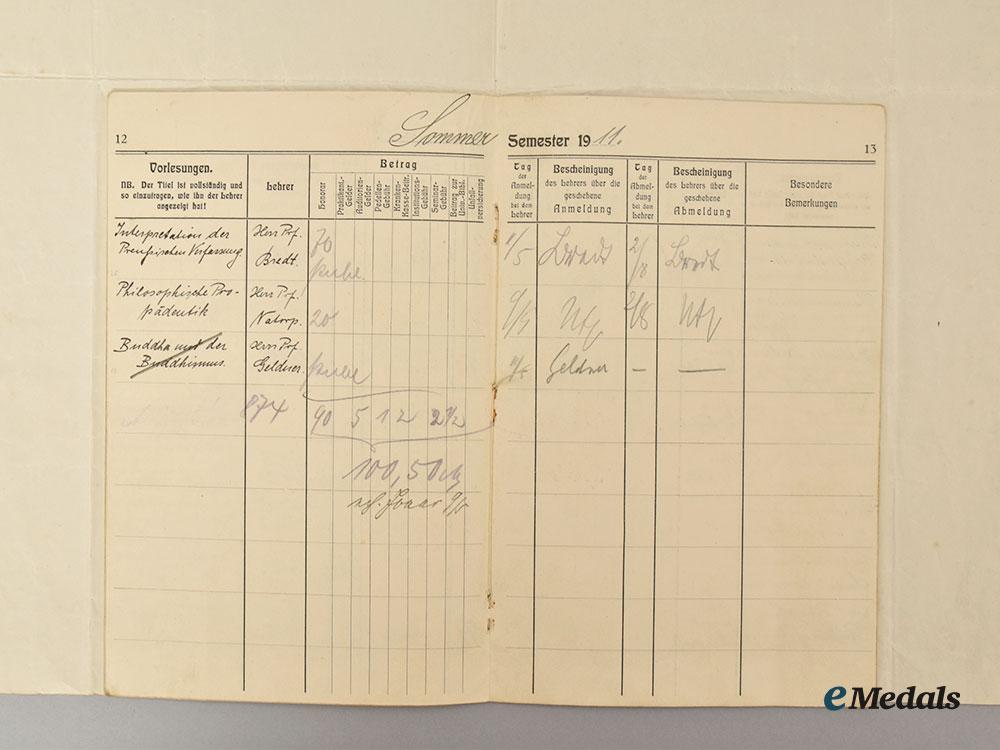 12
Sommer Semester 1911.
13
Vorlesungen.
NB. Der Titel ist vollständig und
so einzutragen, wie ihn der Lehrer
angezeigt hat!
Lehrer
Betrag
Honorar
Praktikant.-
Gelder
Auditorien-
Gelder
Pedellen-
Gebühr
Kranken-
Kasse-Beitr.
Institutions-
Gebühr
Seminar-
Gebühr
Beitrag zur
Univ.-Bibl.
Unfall-
versicherung
Tag
der
Anmel-
dung
bei dem
Lehrer
Bescheinigung
des Lehrers über die
geschehene
Anmeldung
Tag
der
Abmel-
dung
bei dem
Lehrer
Bescheinigung
des Lehrers über die
geschehene
Abmeldung
Besondere
Bemerkungen
Interpretation der Herr Prof.
Preußischen Verfassung. Bredt.
Bredt 2/8 Bredt
Philosophische Pro- Herr Prof.
pädeutik Natorp. 20
2/8
Buddha und der Herr Prof.
Buddhismus. Geldner.
Geldner — —
874 90 5 12 2 1/2
100,50
eMedals